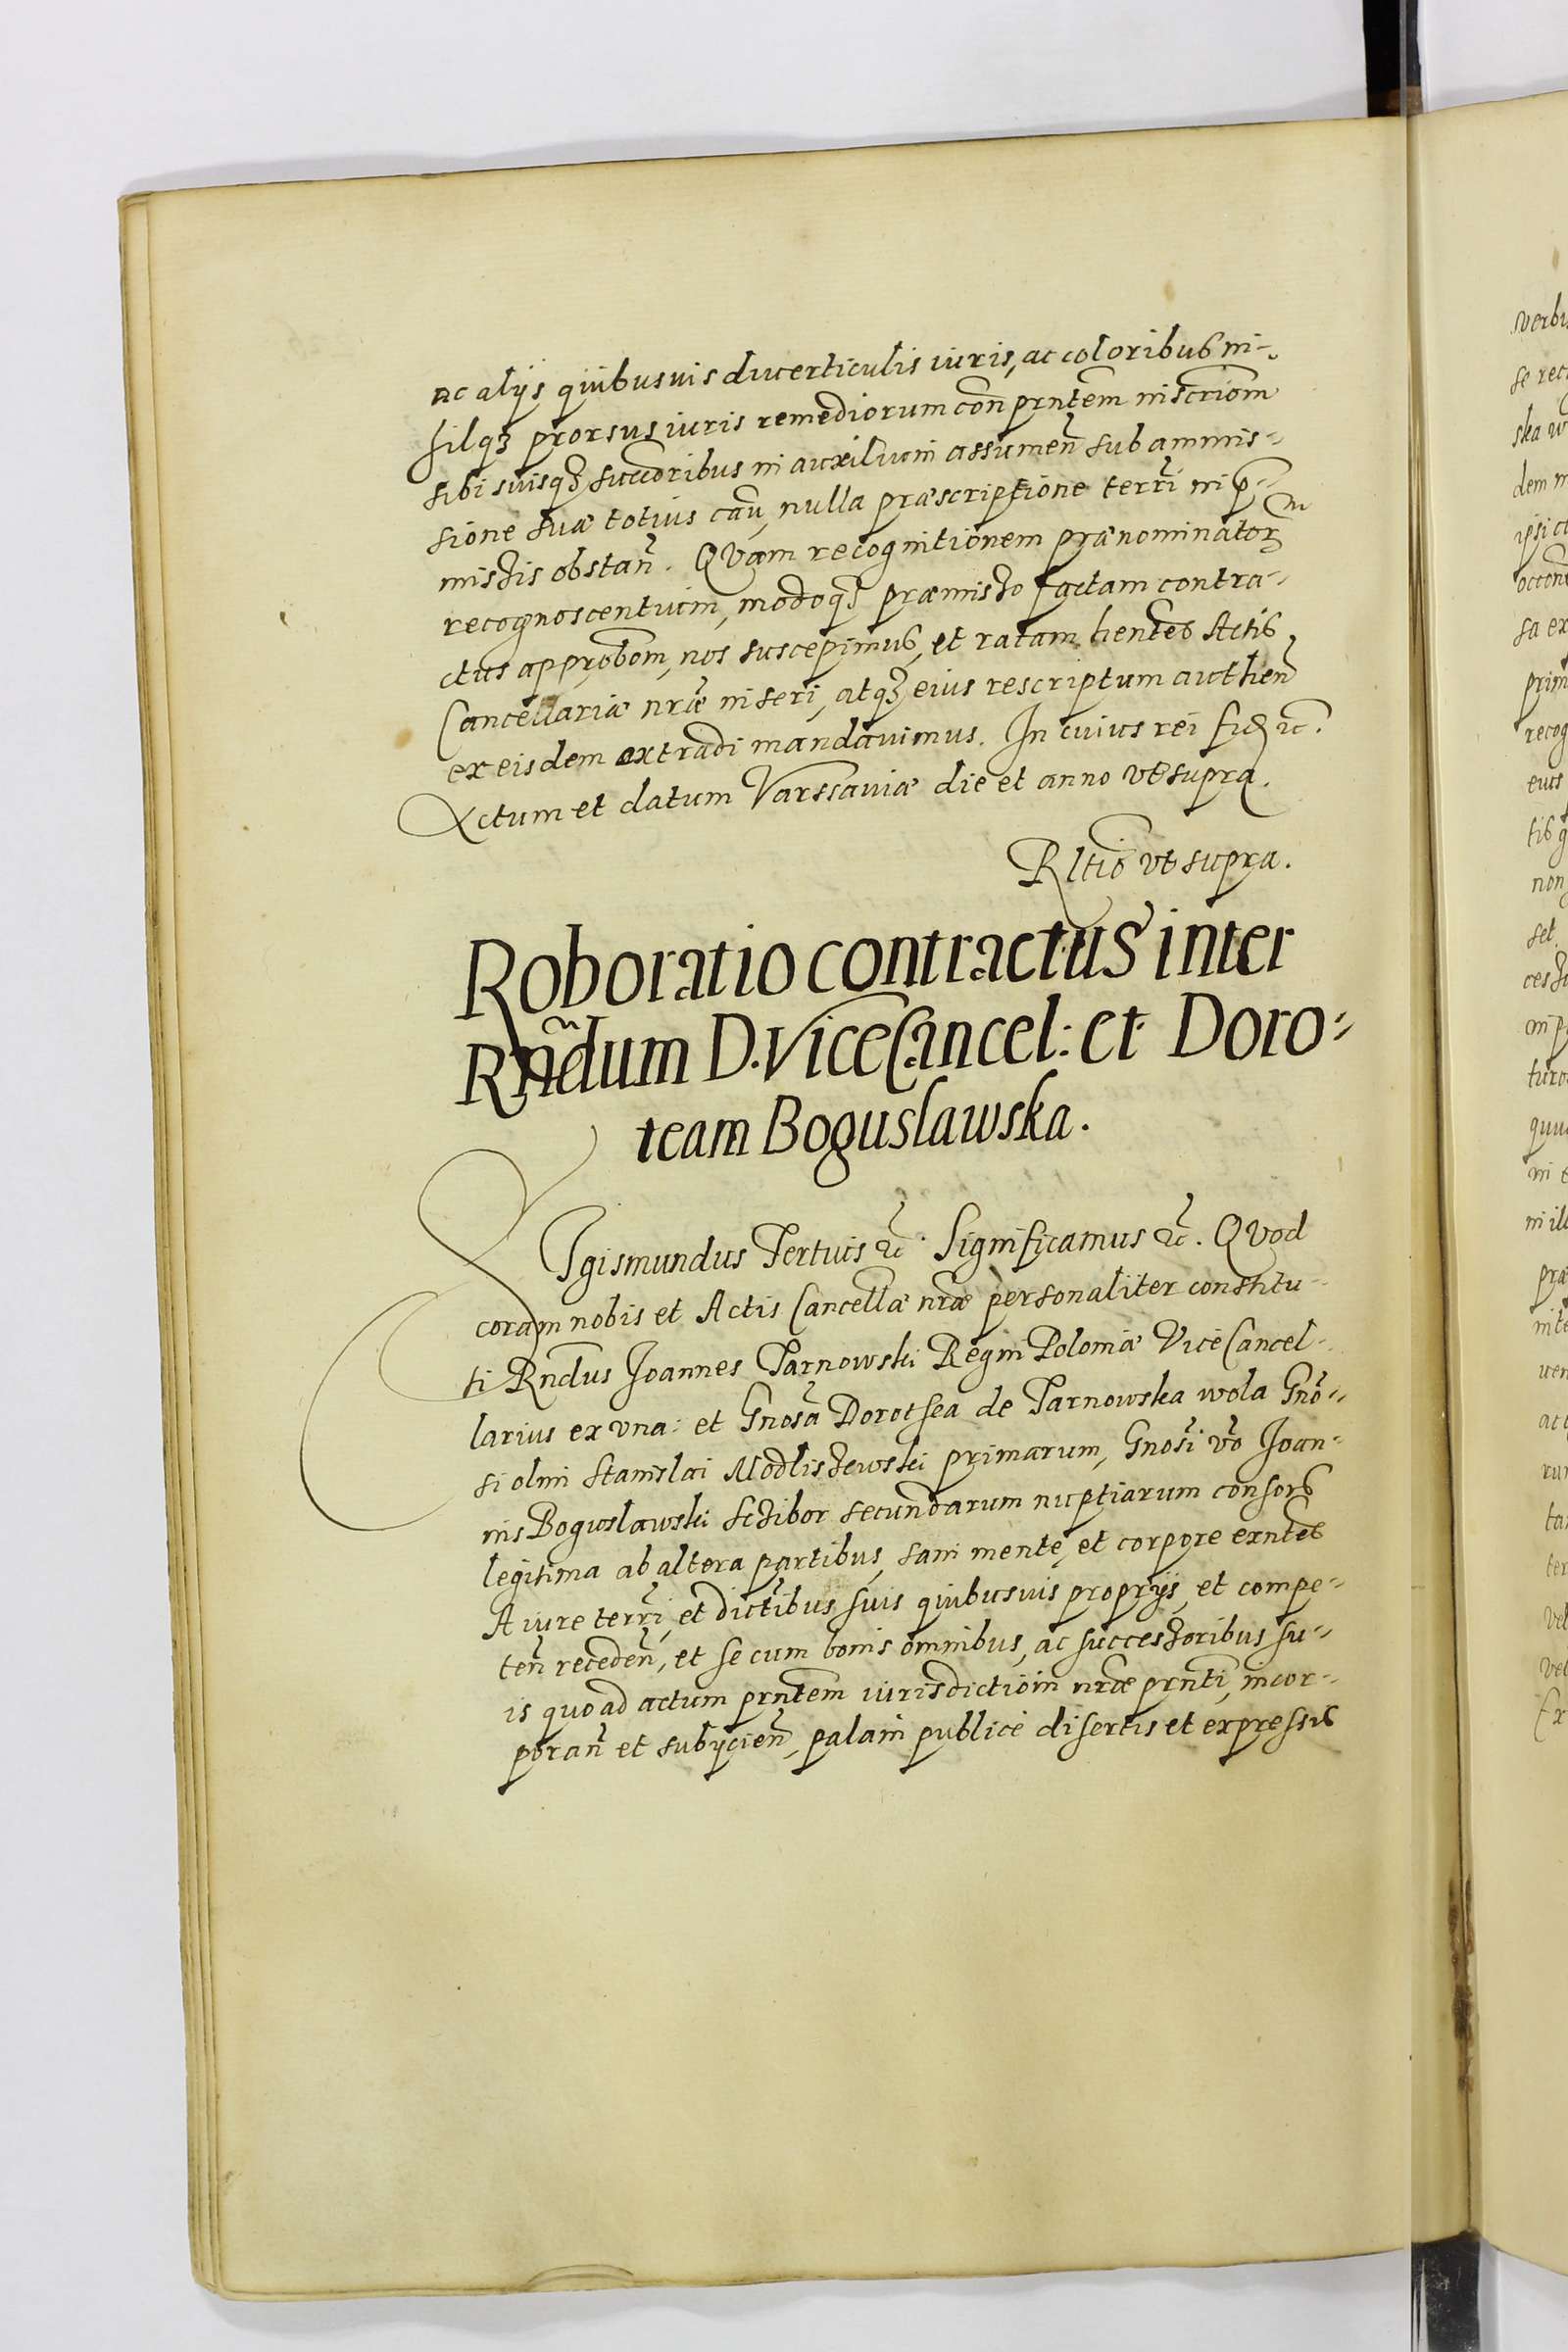 ac alijs quibusuis diuerticulis iuris, ac coloribus ni-
hilqꝫ prorsus iuris remediorum con̄ prn̄tem inscrīom
sibi suisqꝫ succōribus in auxilium assumen̄ sub ammis-
sione suæ totius cau͂, nulla præscriptione terrī in p̄-
missis obstan̄. Quam recognitionem prænominatorꝫ
recognoscentium, modoqꝫ præmisso factam contra-
ctus approbōm, nos suscepimus, et ratam hentēs Actis
Cancellariæ nrāe inseri, atqꝫ eius rescriptum authen̄
ex eisdem extradi mandauimus. In cuius rei fid ꝛc̄.
Actum et datum Varssauiæ die et anno vt supra.
Rltiō vt supra.
Roboratio contractus inter
Rn̄dum D. ViceCancel: et Doro-
team Boguslawska.
SIgismundus Tertius ꝛc̄. Significamus ꝛc̄. Quod
coram nobis et Actis Cancellæ nrāe personaliter constitu-
ti Rn̄dus Joannes Tarnowski Regni Poloniæ ViceCancel-
larius ex vna: et Gnosā Dorothea de Tarnowska wola Gnō-
si olim Stanislai Modliszewski primarum, Gnosī vō Joan-
nis Boguslawski Sczibor secundarum nuptiarum consors
legitima ab altera partibus, sani mente, et corpore exn̄tes
A iure terrī, et dictībus suis quibusuis proprijs, et compe-
ten̄ receden̄, et se cum bonis omnibus, ac successoribus su-
is quo ad actum prn̄tem iurisdictioīn nrāe prn̄ti, incor-
poran̄ et subijcien̄, palam publicè disertis et expressis